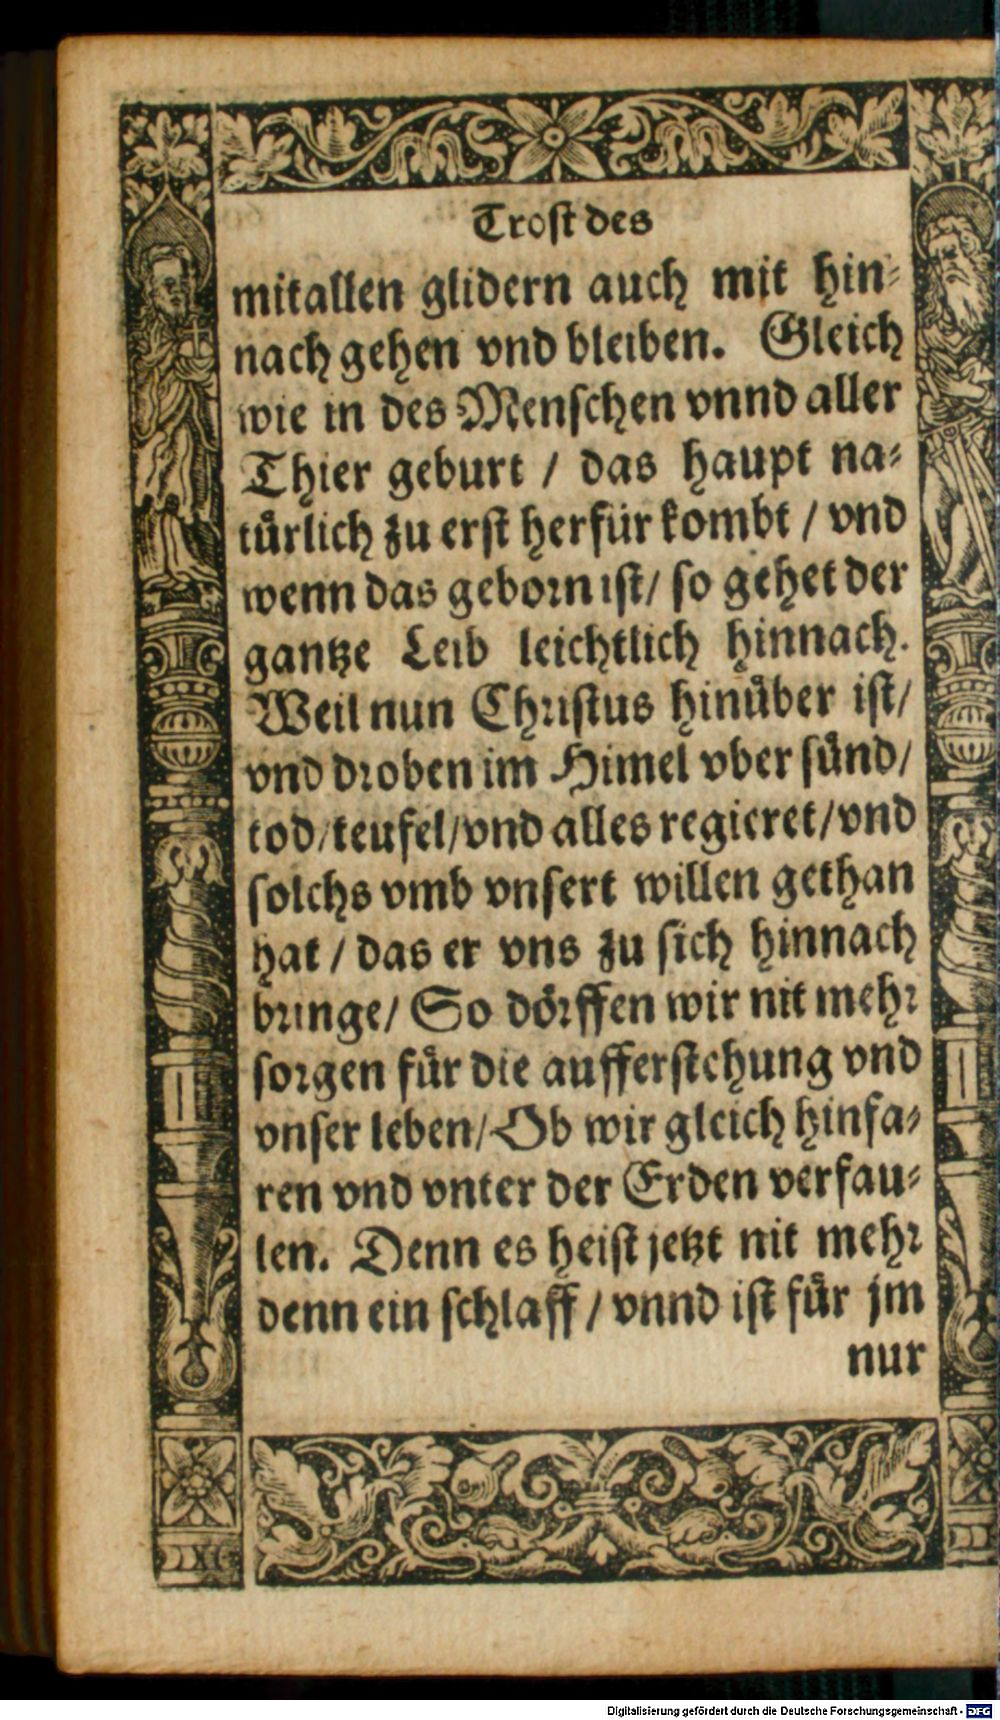 Trost des
mitallen glidern auch mit hin⸗
nach gehen vnd bleiben. Gleich
wie in des Menschen vnnd aller
Thier geburt / das haupt na⸗
tuͤrlich zu erst herfuͤr kombt / vnd
wenn das geborn ist / so gehet der
gantze Leib leichtlich hinnach.
Weil nun Christus hinuͤber ist /
vnd droben im Himel vber suͤnd /
tod / teufel / vnd alles regieret / vnd
solchs vmb vnsert willen gethan
hat / das er vns zu sich hinnach
bringe / So doͤrffen wir nit mehr
sorgen fuͤr die aufferstehung vnd
vnser leben / Ob wir gleich hinfa⸗
ren vnd vnter der Erden verfau⸗
len. Denn es heist jetzt nit mehr
denn ein schlaff / vnnd ist fuͤr jm
nur
Digitalisierung gefördert durch die Deutsche Forschungsgemeinschaft - DFG